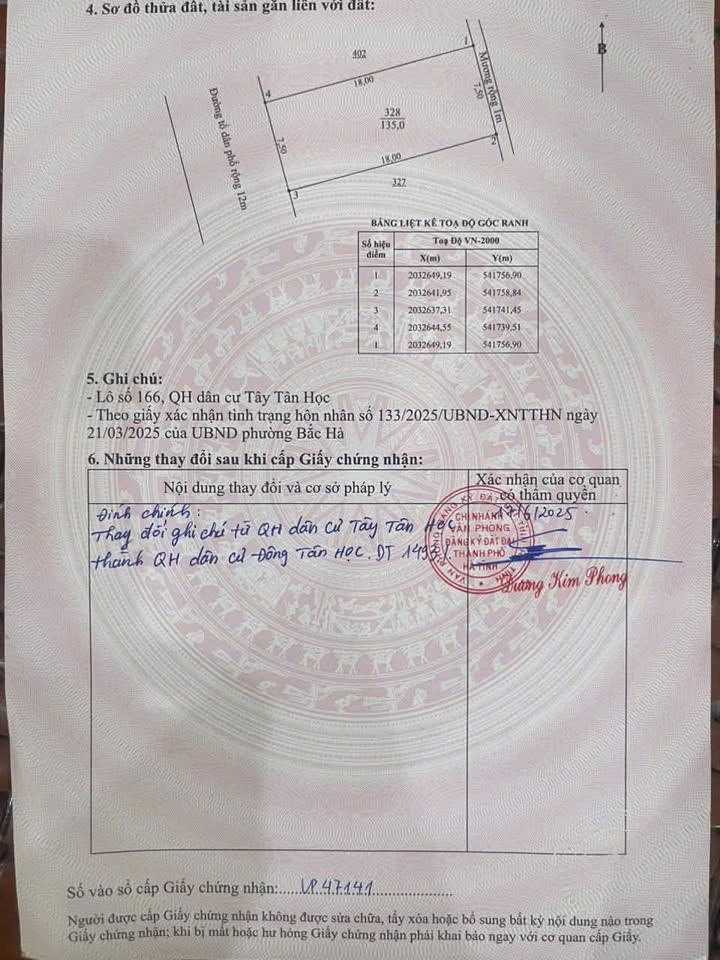 4. Sơ đồ thửa đất, tài sản gắn liền với đất:
402
1
B
18,00
Mương rộng 1m
7,50
4
Đường tổ dân phố rộng 12m
328
135,0
7,50
2
18,00
3
327
BẢNG LIỆT KÊ TOẠ ĐỘ GÓC RANH
Số hiệu điểm Toạ Độ VN-2000
X(m) Y(m)
1 2032649,19 541756,90
2 2032641,95 541758,84
3 2032637,31 541741,45
4 2032644,55 541739,51
1 2032649,19 541756,90
5. Ghi chú:
- Lô số 166, QH dân cư Tây Tân Học
- Theo giấy xác nhận tình trạng hôn nhân số 133/2025/UBND-XNTTHN ngày
21/03/2025 của UBND phường Bắc Hà
6. Những thay đổi sau khi cấp Giấy chứng nhận:
Nội dung thay đổi và cơ sở pháp lý
Xác nhận của cơ quan
có thẩm quyền
Đính chính:
Thay đổi ghi chú từ QH dân cư Tây Tân Học
thành QH dân cư Đông Tân Học. DT
17/6/2025
CHI NHÁNH
VĂN PHÒNG
ĐĂNG KÝ ĐẤT ĐAI
THÀNH PHỐ
HÀ TĨNH
Dương Kim Phong
Số vào sổ cấp Giấy chứng nhận:.....VP.47141....................
Người được cấp Giấy chứng nhận không được sửa chữa, tẩy xóa hoặc bổ sung bất kỳ nội dung nào trong
Giấy chứng nhận; khi bị mất hoặc hư hỏng Giấy chứng nhận phải khai báo ngay với cơ quan cấp Giấy.